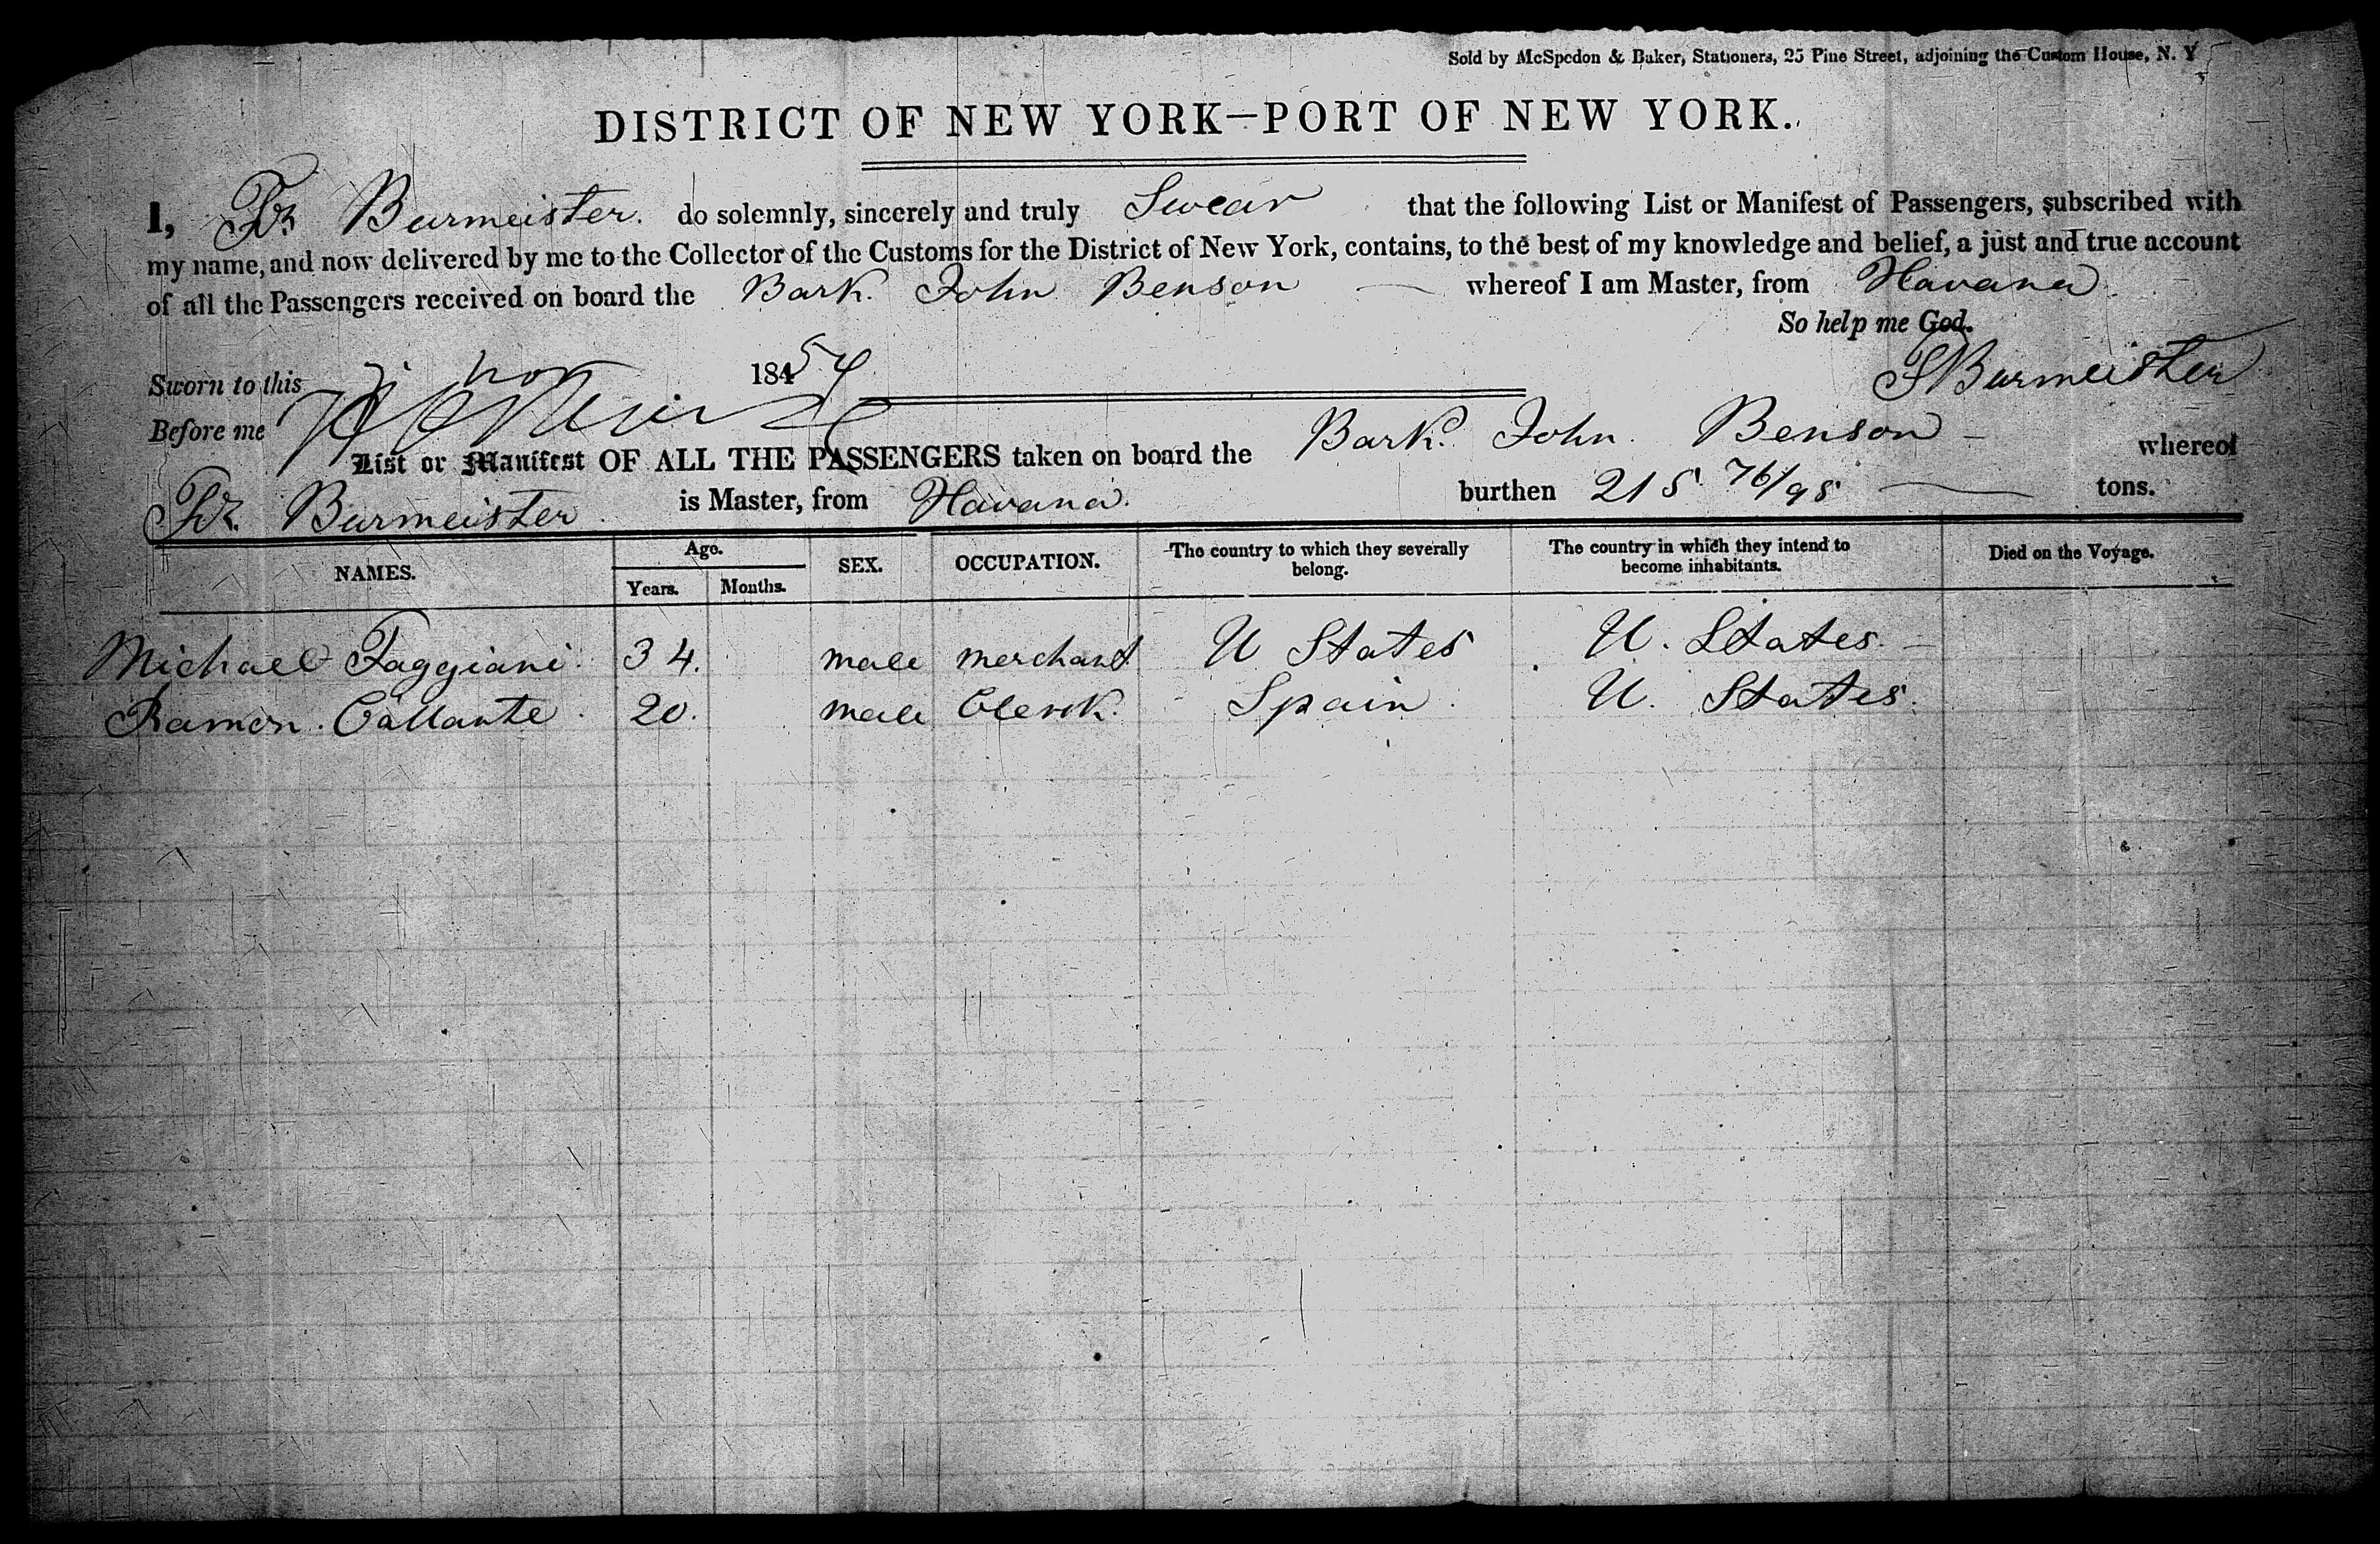 Sold by McSpedon & Baker, Stationers, 25 Pine Street, adjoining the Custom House, N. Y
DISTRICT OF NEW YORK—PORT OF NEW YORK.
I, Fr Burmeister. do solemnly, sincerely and truly Swear that the following List or Manifest of Passengers, subscribed with
my name, and now delivered by me to the Collector of the Customs for the District of New York, contains, to the best of my knowledge and belief, a just and true account
of all the Passengers received on board the Bark. John Benson — whereof I am Master, from Havana.
So help me God.
Sworn to this Nov 1854 F Burmeister
Before me
List or Manifest OF ALL THE PASSENGERS taken on board the Bark. John. Benson – whereof
Fr. Burmeister. is Master, from Havana. burthen 215 76/95 — tons.
NAMES. Age. SEX. OCCUPATION. The country to which they severally belong. The country in which they intend to become inhabitants. Died on the Voyage.
Years. Months.
Michael Faggiani. 34. male merchant U States U. States. –
Ramon. Callante. 20. male Clerck. Spain. U. States.